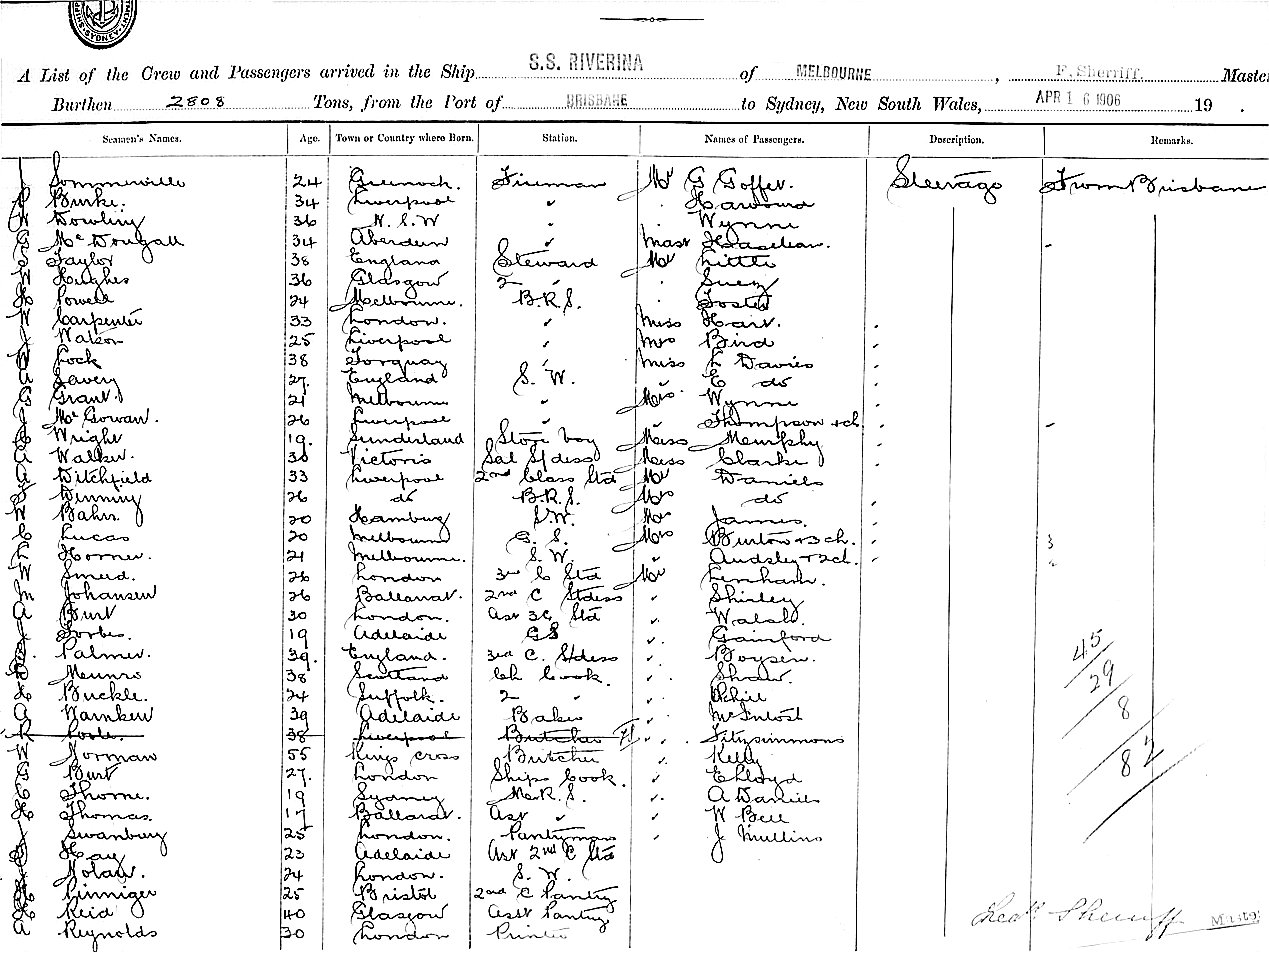 SYDNEY
A List of the Crew and Passengers arrived in the Ship S.S. RIVERINA of MELBOURNE, F. Sherriff. Master
Burthen 2808 Tons, from the Port of BRISBANE to Sydney, New South Wales, APR 16 1906 19 .
Seamen's Names. Age. Town or Country where Born. Station. Names of Passengers. Description. Remarks.
J Sommerville 24 Greenock. Fireman Mr G Goffet. Steerage From Brisbane
P Burke. 34 Liverpool " . Harwood
W Dowling 36 N.S.W " . Wynne
G McDougall 34 Aberdeen " Mast Haseldean.
S Taylor 38 England Steward Mr Little
W Hughes 36 Glasgow 2 " . Suey
H Powell 24 Melbourne. B.R.S. . Foster
W Carpenter 33 London. " Miss Hart.
J Watson 25 Liverpool " Mrs Bird
Lock 38 Torquay " Miss L Davies
A Savery 27. England S.W. " E do
G Grant 21 Melbourne " Mrs Wynne
J McGowan. 26 Liverpool " " Thompson + ch
C Wright 19. Sunderland Store boy Miss Memphy
A Walker. 30 Victoria Sal Stdess Miss Clarke
A Ditchfield 33 Liverpool 2nd Class Std Mr Daniels
J Denning 26 do B.R.S. Mrs do
W Bahr. 20 Hamburg S.W. Mr James.
C Lucas 20 Melbourne G.S. Mrs Burton + 3 ch. 3
L Horner. 21 Melbourne. S.W. " Audsley + 2 ch.
W Smeed. 26 London 3rd C Std Mr Lenham.
M Johansen 26 Ballarat. 2nd C Stdess " Shirley
A Burt 30 London. Ast 3C Std " Walsh.
J Forbes. 19 Adelaide GS " Gainford
Palmer. 39. England. 3rd C. Stdess " Boysen. 45
Munro 38 Scotland Ch Cook. " Shaw. 29
H Buckle. 24 Suffolk. 2 " " White 8
A Warnken 39 Adelaide Baker " McIntosh
R Poole. 38 Liverpool Butcher " Fitzsimmons
W Norman 55 Kings Cross Butcher " Kelly 82
G Burt 27. London Ships Cook. " E Lloyd
C Thorne. 19 Sydney M.R.S. " A Daniels
H Thomas. 17 Ballarat. Ast " " W Bell
J Swanbury 25 London. Pantryman " J Mullins
J Hay 23 Adelaide Ast 2nd C Std
J Nolan. 24 London. S.W.
H Pinniger 25 Bristol 2nd C Pantry
H Reid 40 Glasgow Asst Pantry
A Reynolds 30 London Printer
Sherriff Master